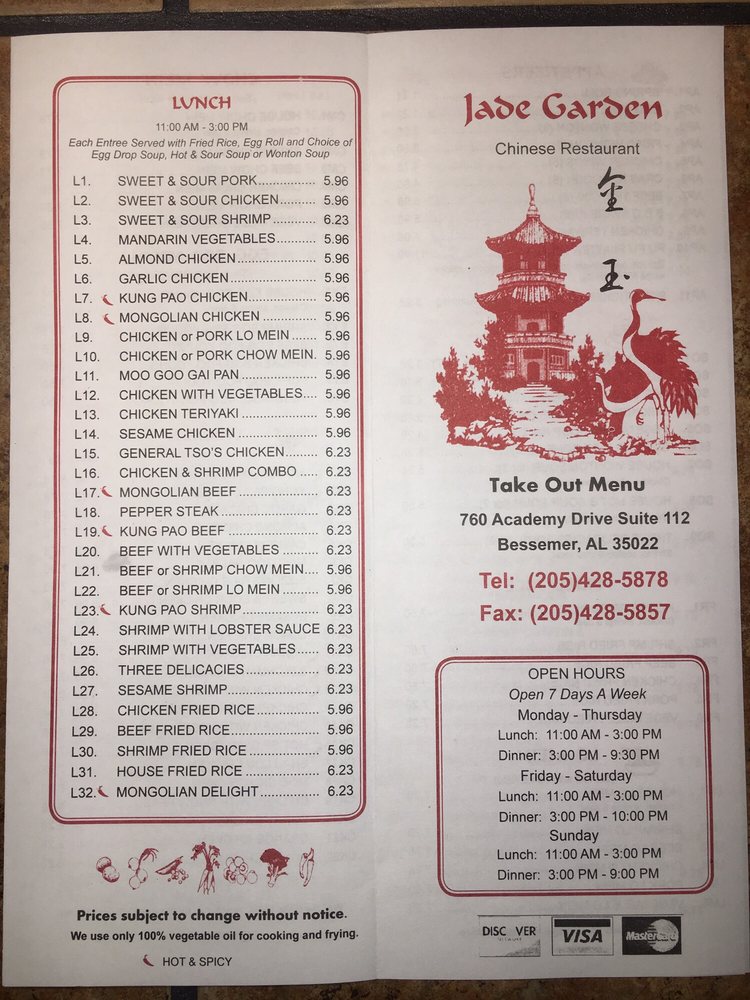 LUNCH
11:00 AM - 3:00 PM
Each Entree Served with Fried Rice, Egg Roll and Choice of
Egg Drop Soup, Hot & Sour Soup or Wonton Soup
L1. SWEET & SOUR PORK................ 5.96
L2. SWEET & SOUR CHICKEN.......... 5.96
L3. SWEET & SOUR SHRIMP............. 6.23
L4. MANDARIN VEGETABLES........... 5.96
L5. ALMOND CHICKEN...................... 5.96
L6. GARLIC CHICKEN........................ 5.96
L7. KUNG PAO CHICKEN................... 5.96
L8. MONGOLIAN CHICKEN................ 5.96
L9. CHICKEN or PORK LO MEIN ....... 5.96
L10. CHICKEN or PORK CHOW MEIN. 5.96
L11. MOO GOO GAI PAN..................... 5.96
L12. CHICKEN WITH VEGETABLES.... 5.96
L13. CHICKEN TERIYAKI..................... 5.96
L14. SESAME CHICKEN ...................... 5.96
L15. GENERAL TSO'S CHICKEN.......... 6.23
L16. CHICKEN & SHRIMP COMBO ..... 6.23
L17. MONGOLIAN BEEF ...................... 6.23
L18. PEPPER STEAK........................... 6.23
L19. KUNG PAO BEEF ......................... 6.23
L20. BEEF WITH VEGETABLES .......... 6.23
L21. BEEF or SHRIMP CHOW MEIN.... 5.96
L22. BEEF or SHRIMP LO MEIN .......... 5.96
L23. KUNG PAO SHRIMP..................... 6.23
L24. SHRIMP WITH LOBSTER SAUCE 6.23
L25. SHRIMP WITH VEGETABLES...... 6.23
L26. THREE DELICACIES.................... 6.23
L27. SESAME SHRIMP......................... 6.23
L28. CHICKEN FRIED RICE................. 5.96
L29. BEEF FRIED RICE........................ 5.96
L30. SHRIMP FRIED RICE ................... 5.96
L31. HOUSE FRIED RICE .................... 6.23
L32. MONGOLIAN DELIGHT................ 6.23
Prices subject to change without notice.
We use only 100% vegetable oil for cooking and frying.
HOT & SPICY
Jade Garden
Chinese Restaurant
金
玉
Take Out Menu
760 Academy Drive Suite 112
Bessemer, AL 35022
Tel: (205)428-5878
Fax: (205)428-5857
OPEN HOURS
Open 7 Days A Week
Monday - Thursday
Lunch: 11:00 AM - 3:00 PM
Dinner: 3:00 PM - 9:30 PM
Friday - Saturday
Lunch: 11:00 AM - 3:00 PM
Dinner: 3:00 PM - 10:00 PM
Sunday
Lunch: 11:00 AM - 3:00 PM
Dinner: 3:00 PM - 9:00 PM
DISC VER
VISA
MasterCard